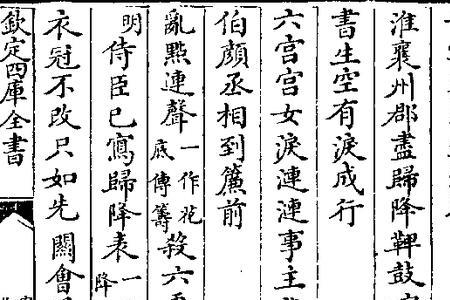 淮襄州郡盡歸降鞞鼓
書生空有淚成行
六宮宮女淚漣漣事主
伯顔丞相到簾前
亂㸃連聲一作花底傳籌殺六
明侍臣已寫歸降表一降
衣冠不改只如先關會
欽定四庫全書